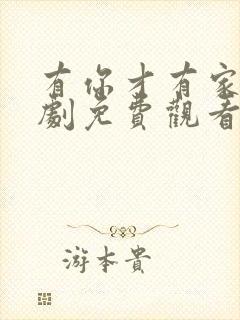 有你才有家
劇免費觀看
游本貴